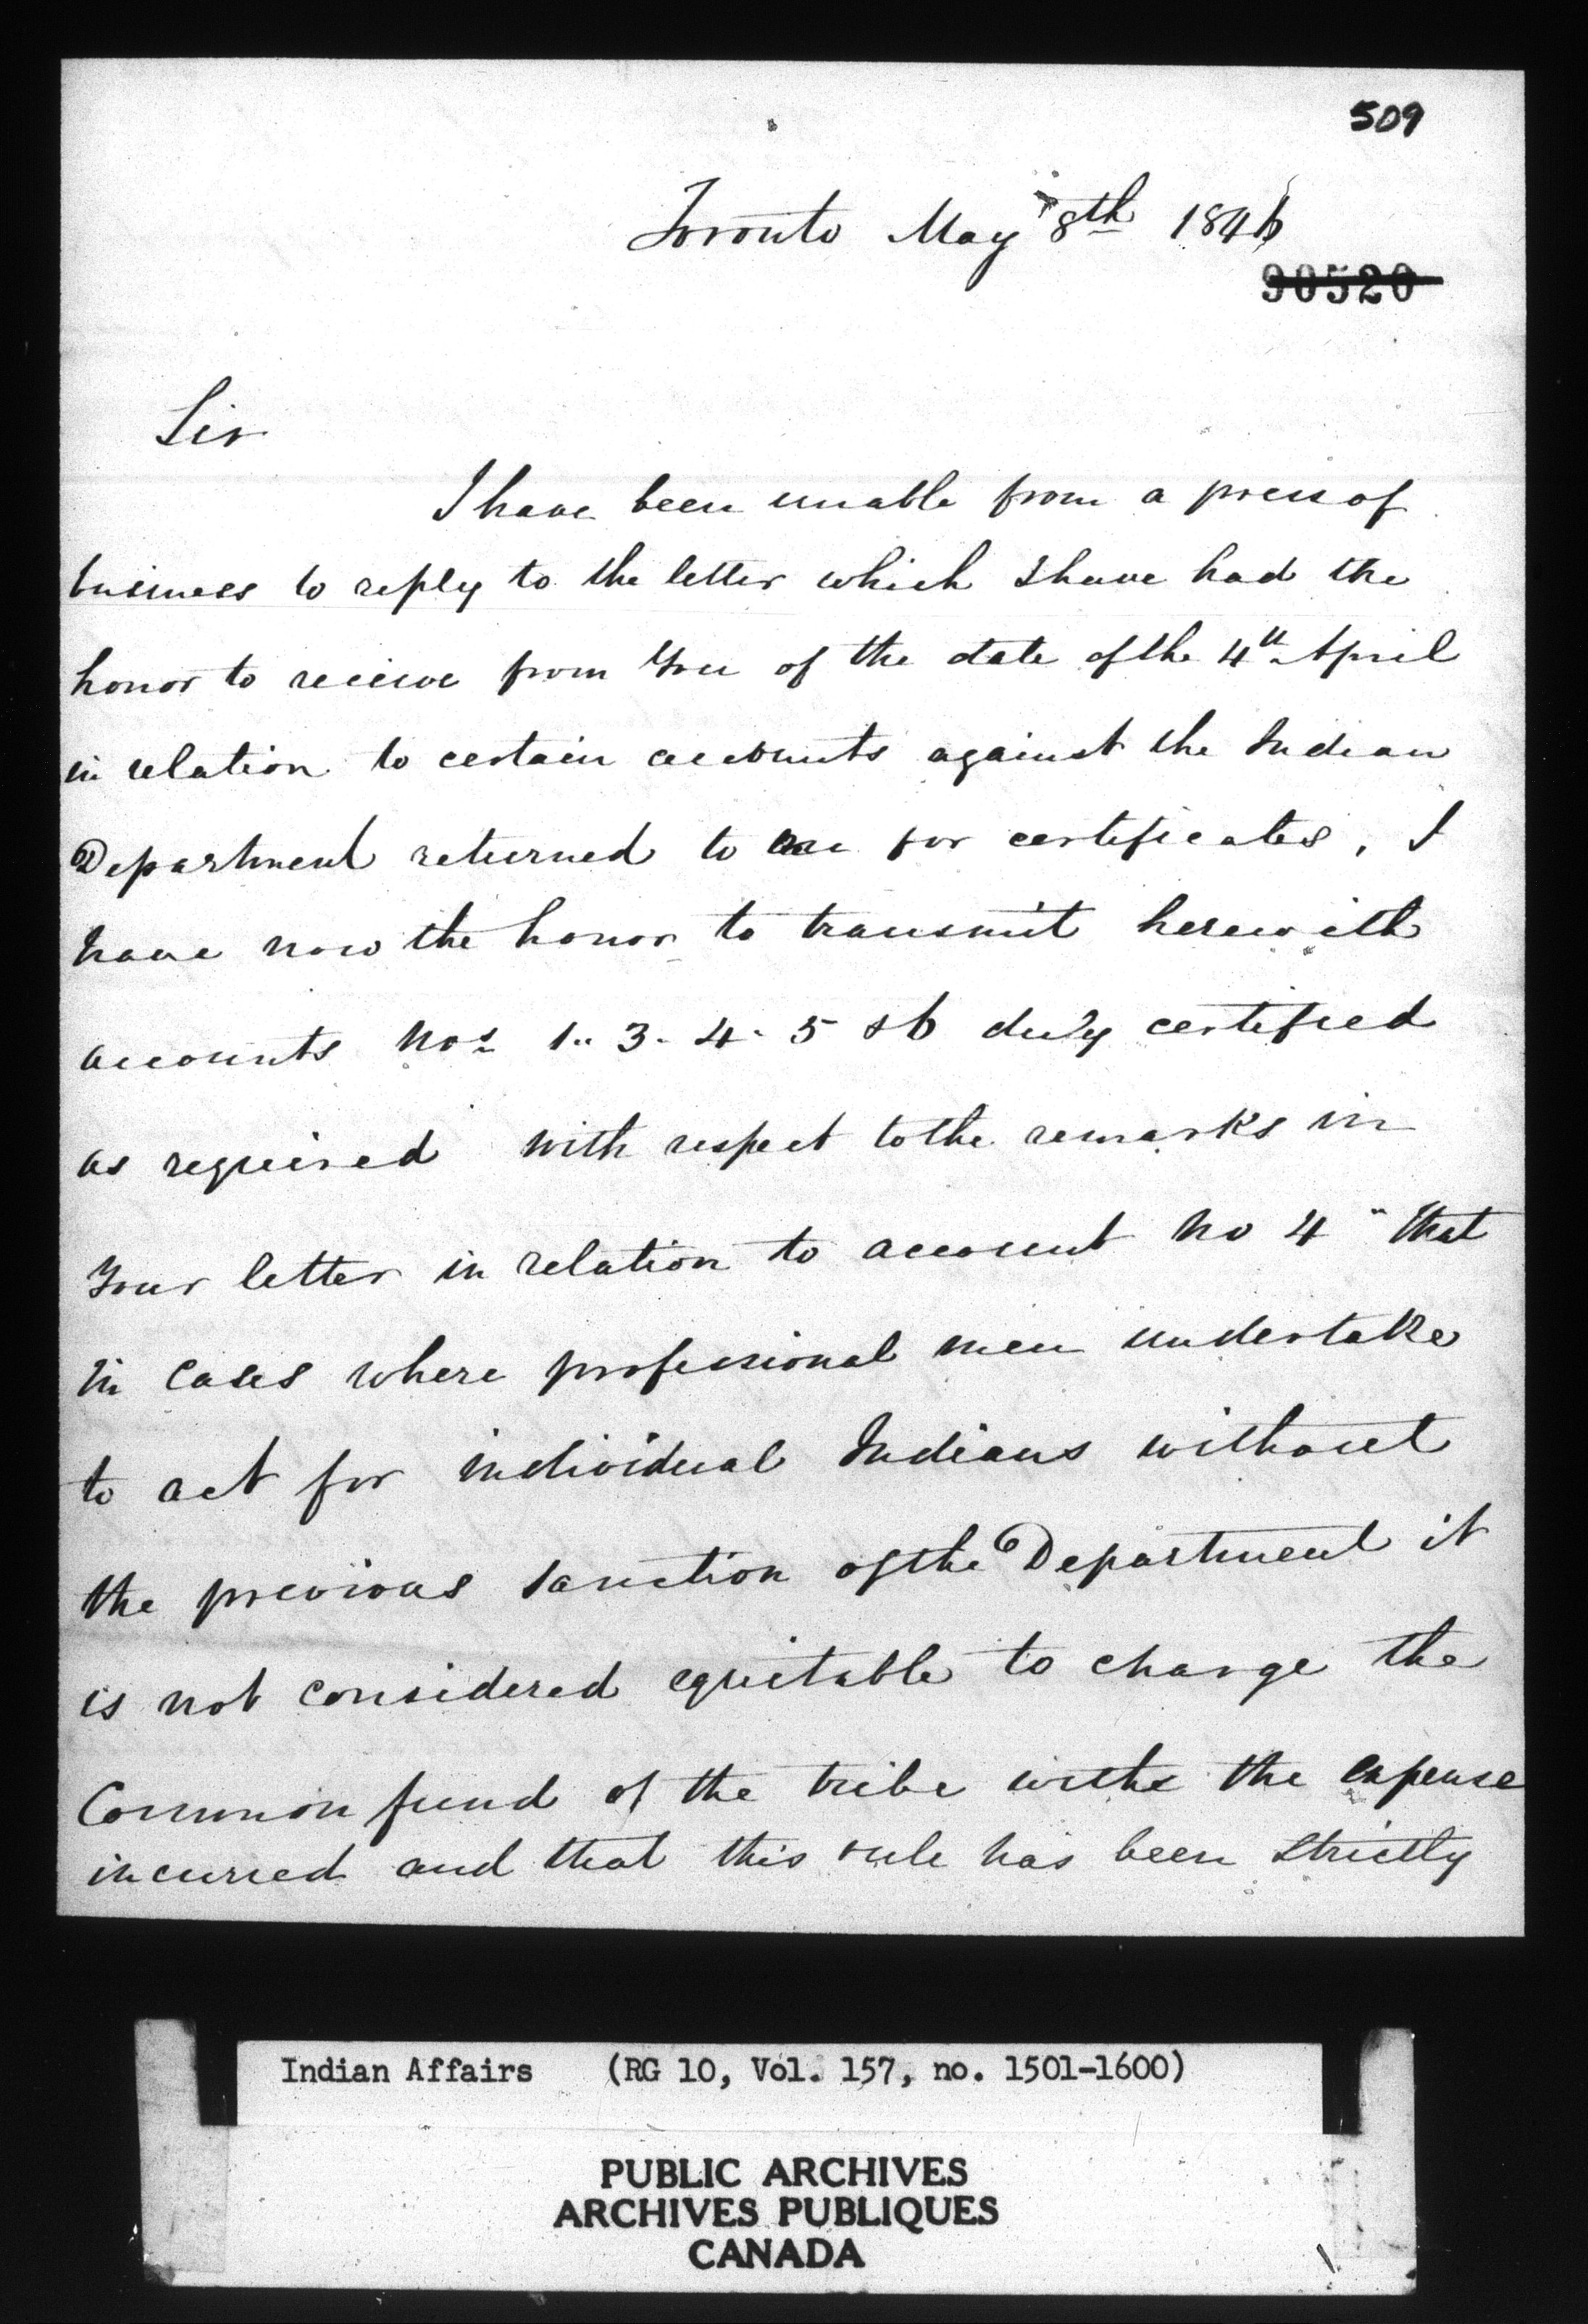 509
Toronto May 8th 1846
90520
Sir
I have been unable from a press of
business to reply to the letter which I have had the
honor to receive from You of the date of the 4th April
in relation to certain accounts against the Indian
Department returned to me for certificates, I
have now the honor to transmit herewith
accounts Nos 1.. 3. 4. 5 & 6 duly certified
as required with respect to the remarks in
Your letter in relation to account No 4 " that
in cases where professional men undertake
to act for individual Indians without
the previous sanction of the Department it
is not considered equitable to charge the
Common fund of the tribe with the expense
incurred and that this rule has been strictly
Indian Affairs (RG 10, Vol. 157, no. 1501-1600)
PUBLIC ARCHIVES
ARCHIVES PUBLIQUES
CANADA